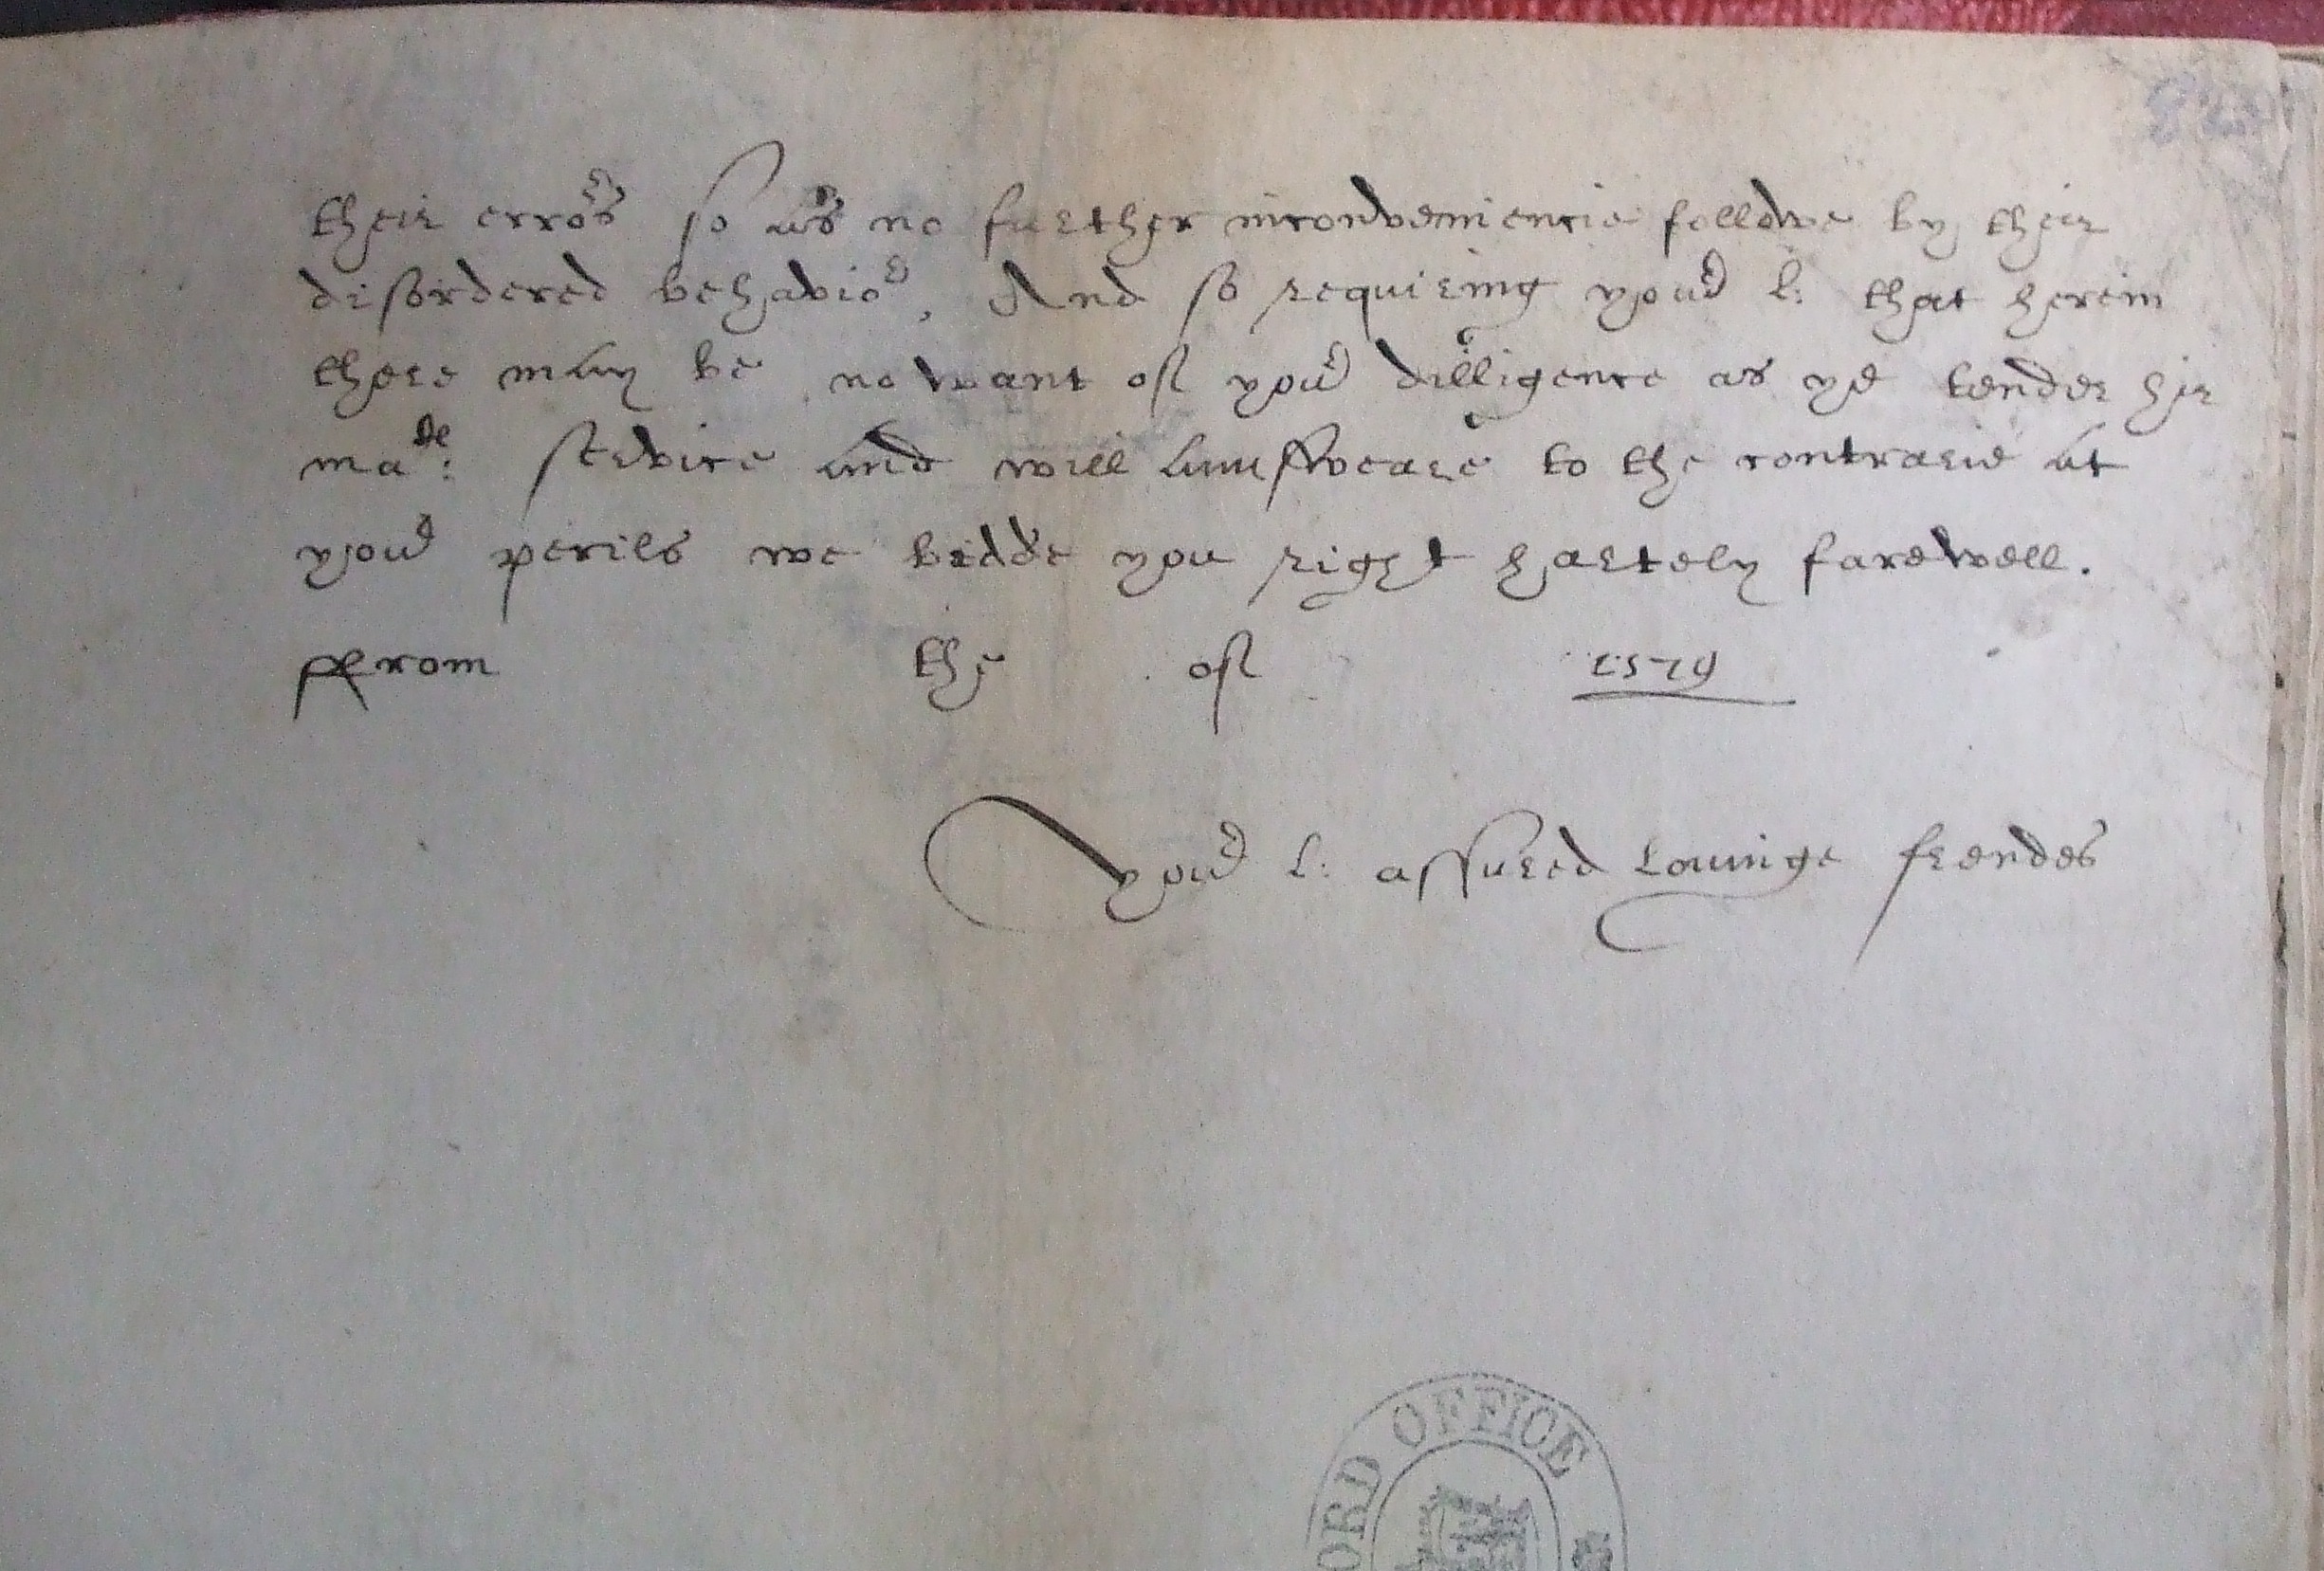 their erro^rs so as no further inconveniencie followe by their
disordered behavio^r, And so requiring you^r L: that herein
there may be no want of yo^r dilligence as ye tender hir
ma^te: service and will aunsweare to the contrarie at
yo^r perils we bidde you right hartely farewell.
ffrom the of 1579
Yo^r L: assured lovinge frendes
ORD OFFICE